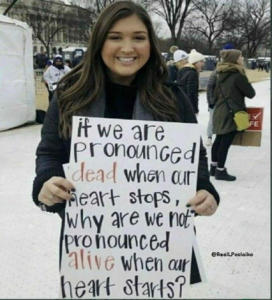 if we are
pronounced
dead when our
heart stops,
why are we not
pronounced
alive when our
heart starts?